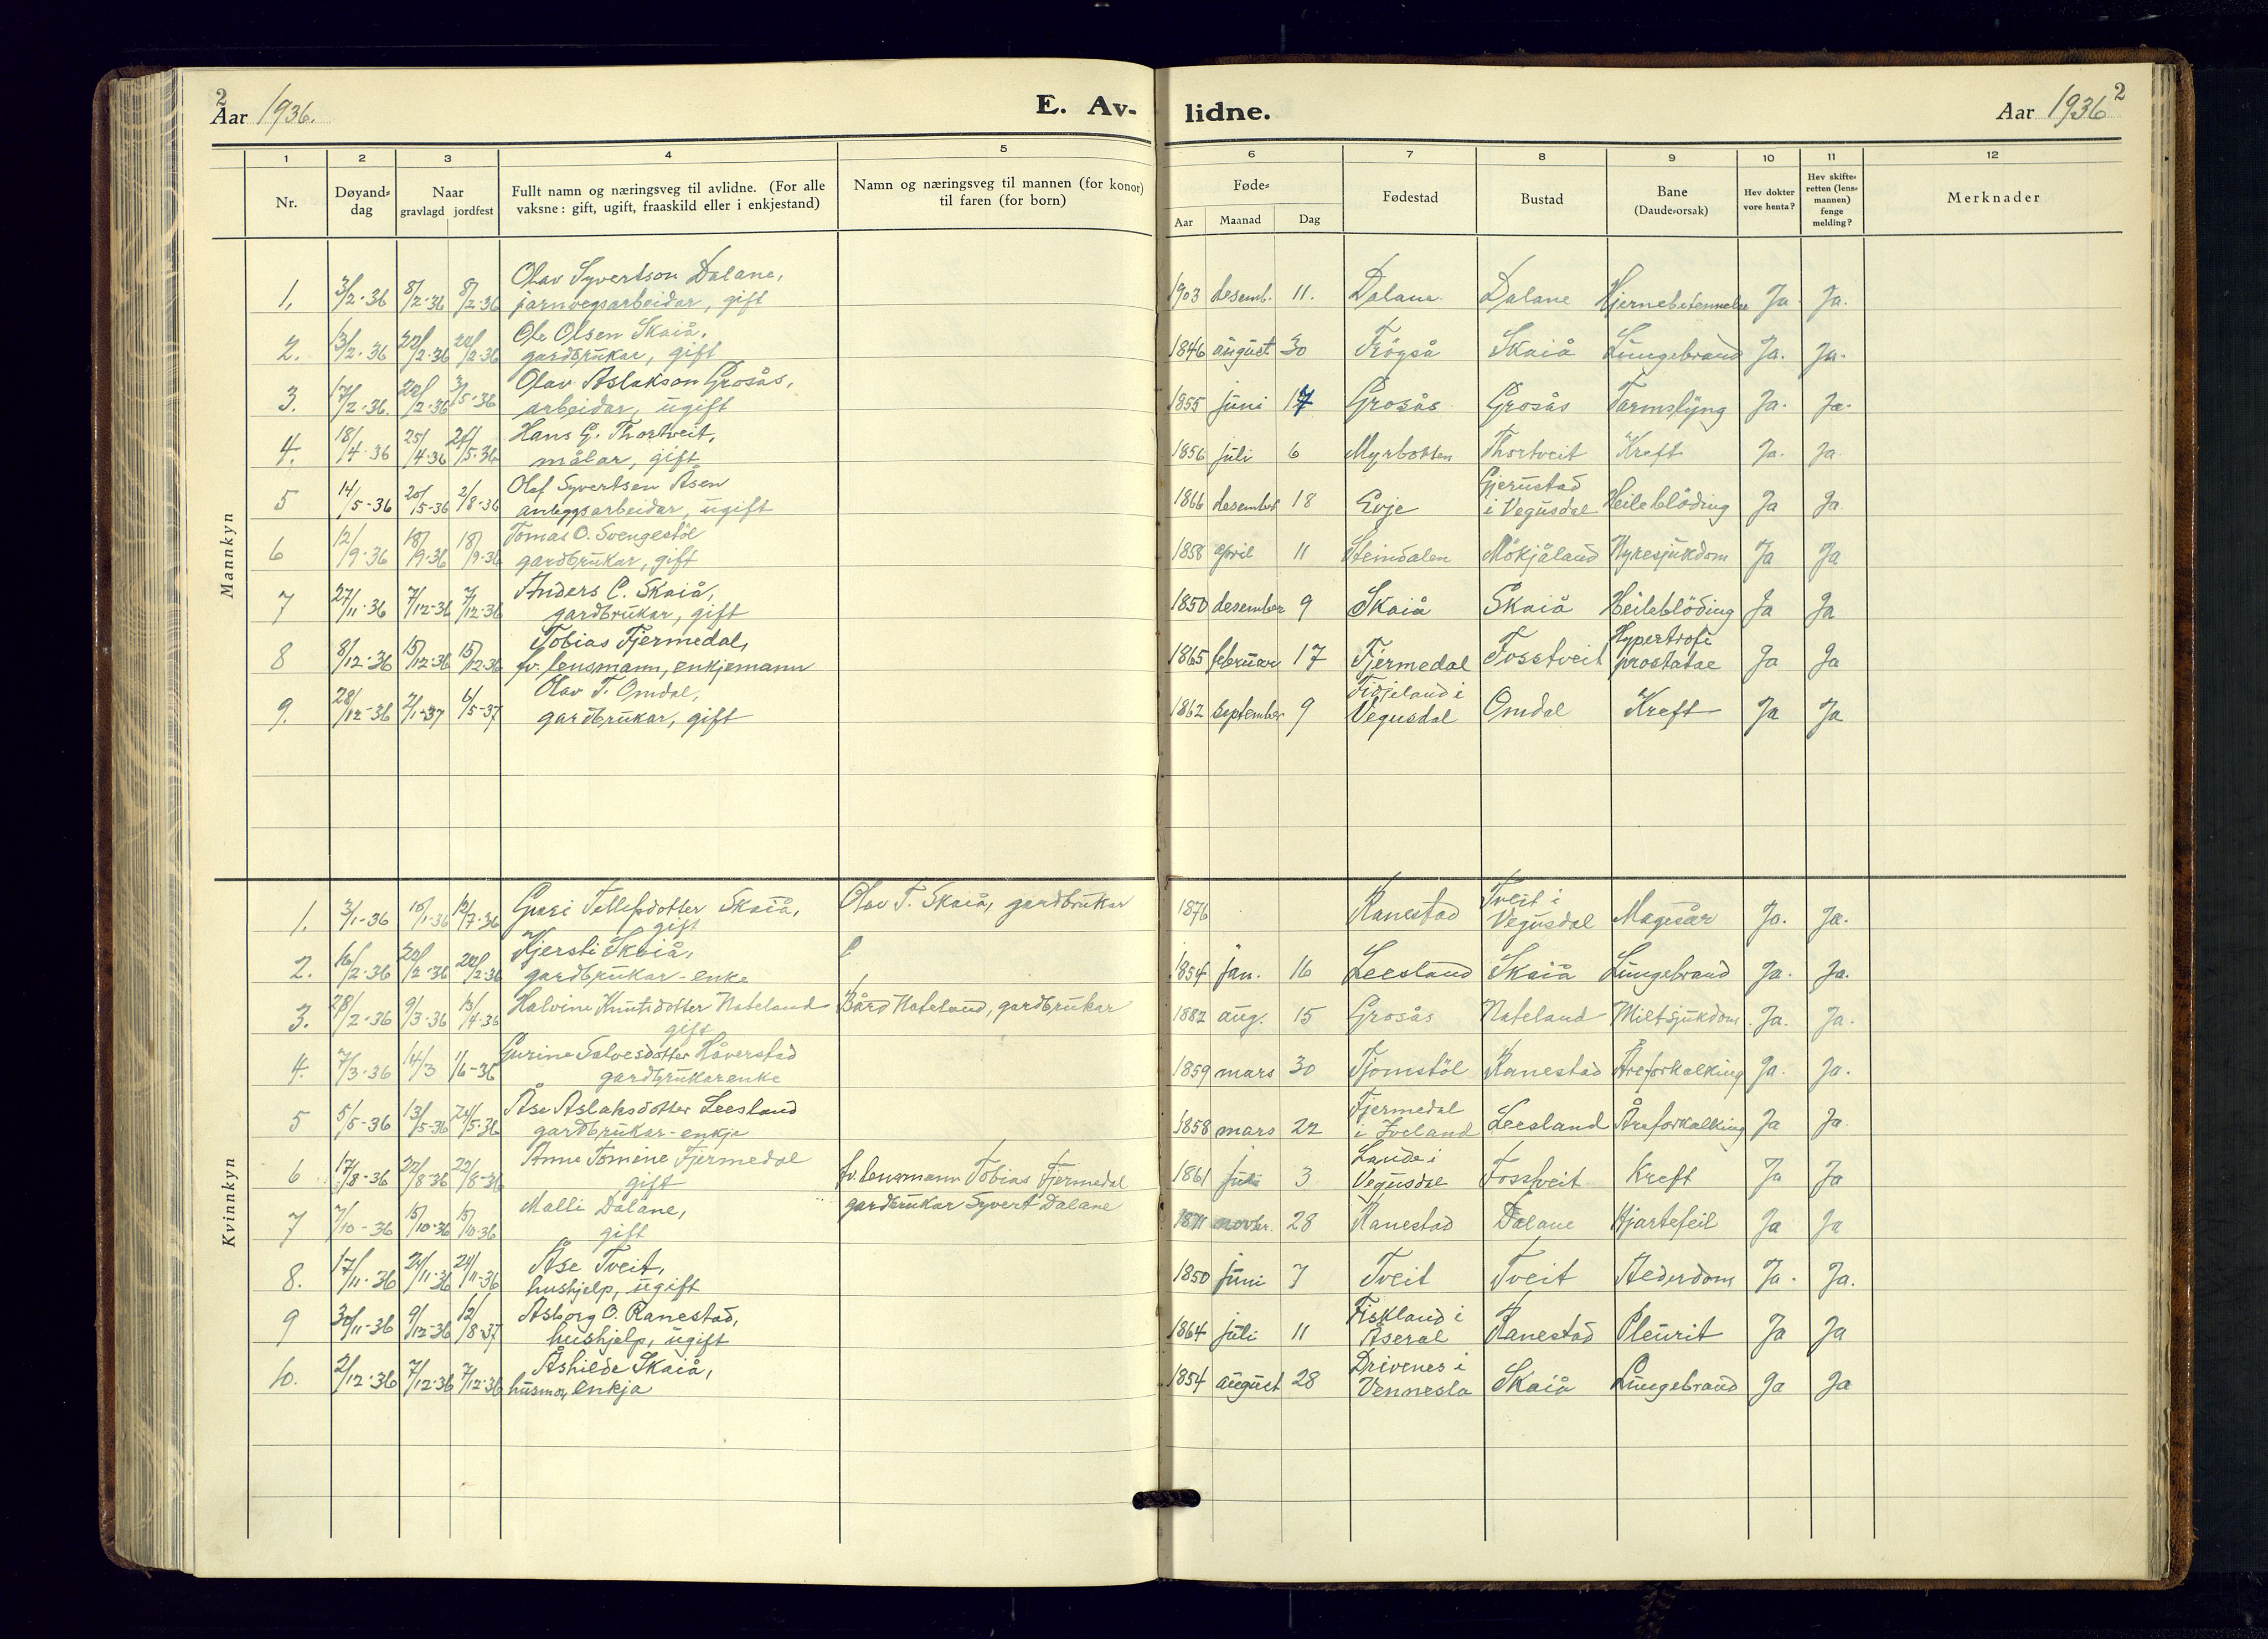 2
Aar 1936.
E. Av-
lidne.
Aar 1936
2
1 2 3 4 5 6 7 8 9 10 11 12
Nr.
Døyand-
dag
Naar
gravlagd jordfest
Fullt namn og næringsveg til avlidne. (For alle
vaksne: gift, ugift, fraaskild eller i enkjestand)
Namn og næringsveg til mannen (for konor)
til faren (for born)
Føde-
Aar Maanad Dag
Fødestad
Bustad
Bane
(Daude-orsak)
Hev dokter
vore henta?
Hev skifte-
retten (lens-
mannen)
fenge
melding?
Merknader
Mannkyn
Olav Syvertson Dalane,
1. 3/2-36 8/2-36 8/2-36 jarnvegsarbeidar, gift 1903 desemb. 11. Dalane Dalane Hjernebetennelse Ja. Ja.
Ole Olsen Skaiå,
2. 13/2-36 22/2-36 22/2-36 gardbrukar, gift 1846 august 30 Frøyså Skaiå Lungebrand Ja. Ja.
Olav Aslakson Grosås,
3. 17/2-36 22/2-36 3/5-36 arbeidar, ugift 1855 juni 17 Grosås Grosås Tarmslyng Ja. Ja.
Hans G. Thortveit,
4. 18/4-36 25/4-36 21/5-36 målar, gift 1856 juli 6 Myrbotten Thortveit Kreft Ja. Ja
Olaf Syvertsen Åsen Gjerustad
5 14/5-36 20/5-36 2/8-36 anleggsarbeidar, ugift 1866 desember 18 Evje i Vegusdal Heileblöding Ja Ja
Tomas O. Svengestöl
6 12/9-36 18/9-36 18/9-36 gardbrukar, gift 1858 april 11 Steindalen Mökjåland Nyresjukdom Ja Ja
Anders C. Skaiå,
7 27/11-36 7/12-36 7/12-36 gardbrukar, gift 1850 desember 9 Skaiå Skaiå Heileblöding Ja Ja
Tobias Fjermedal, Hypertrofi
8 8/12-36 15/12-36 15/12-36 fv. lensmann, enkjemann 1865 februar 17 Fjermedal Fosstveit prostatae Ja Ja
Olav T. Omdal, Fidjeland i
9. 28/12-36 2/1-37 6/5-37 gardbrukar, gift 1862 september 9 Vegusdal Omdal Kreft Ja Ja
Kvinnkyn
Guri Tellefsdotter Skaiå, Olav T. Skaiå, gardbrukar Tveit i
1. 3/1-36 18/1-36 12/7-36 gift 1876 Ranestad Vegusdal Magesår Ja. Ja.
Kjersti Skaiå,
2. 16/2-36 22/2-36 22/2-36 gardbrukar-enke 1854 jan. 16 Leesland Skaiå Lungebrand Ja. Ja.
Halvine Knutsdotter Nateland Bård Nateland, gardbrukar
3. 28/2-36 9/3-36 13/4-36 gift 1882 aug. 15 Grosås Nateland Miltsjukdom Ja. Ja.
Gurine Salvesdotter Håverstad
4. 7/3-36 14/3 1/6-36 gardbrukarenke 1859 mars 30 Tjomstöl Ranestad Åreforkalking Ja. Ja.
Åse Aslaksdotter Leesland Fjermedal
5 5/5-36 13/5-36 24/5-36 gardbrukar-enkje 1858 mars 22 i Iveland Leesland Åreforkalking Ja Ja
Anne Tomine Fjermedal Lande i
6 17/8-36 22/8-36 22/8-36 gift fv. lensmann Tobias Fjermedal 1861 juli 3 Vegusdal Fosstveit Kreft Ja Ja
Malli Dalane, gardbrukar Syvert Dalane
7 7/10-36 15/10-36 15/10-36 gift 1871 novbr. 28 Ranestad Dalane Hjartefeil Ja Ja
Åse Tveit,
8. 17/11-36 24/11-36 24/11-36 hushjelp, ugift 1850 juni 7 Tveit Tveit Alderdom Ja. Ja.
Asborg O. Ranestad, Fiskland i
9 30/11-36 9/12-36 12/8-37 hushjelp, ugift 1864 juli 11 Åseral Ranestad Pleurit Ja Ja
Åshilde Skaiå, Drivenes i
10. 2/12-36 7/12-36 7/12-36 husmor, enkja 1854 august 28 Vennesla Skaiå Lungebrand Ja Ja